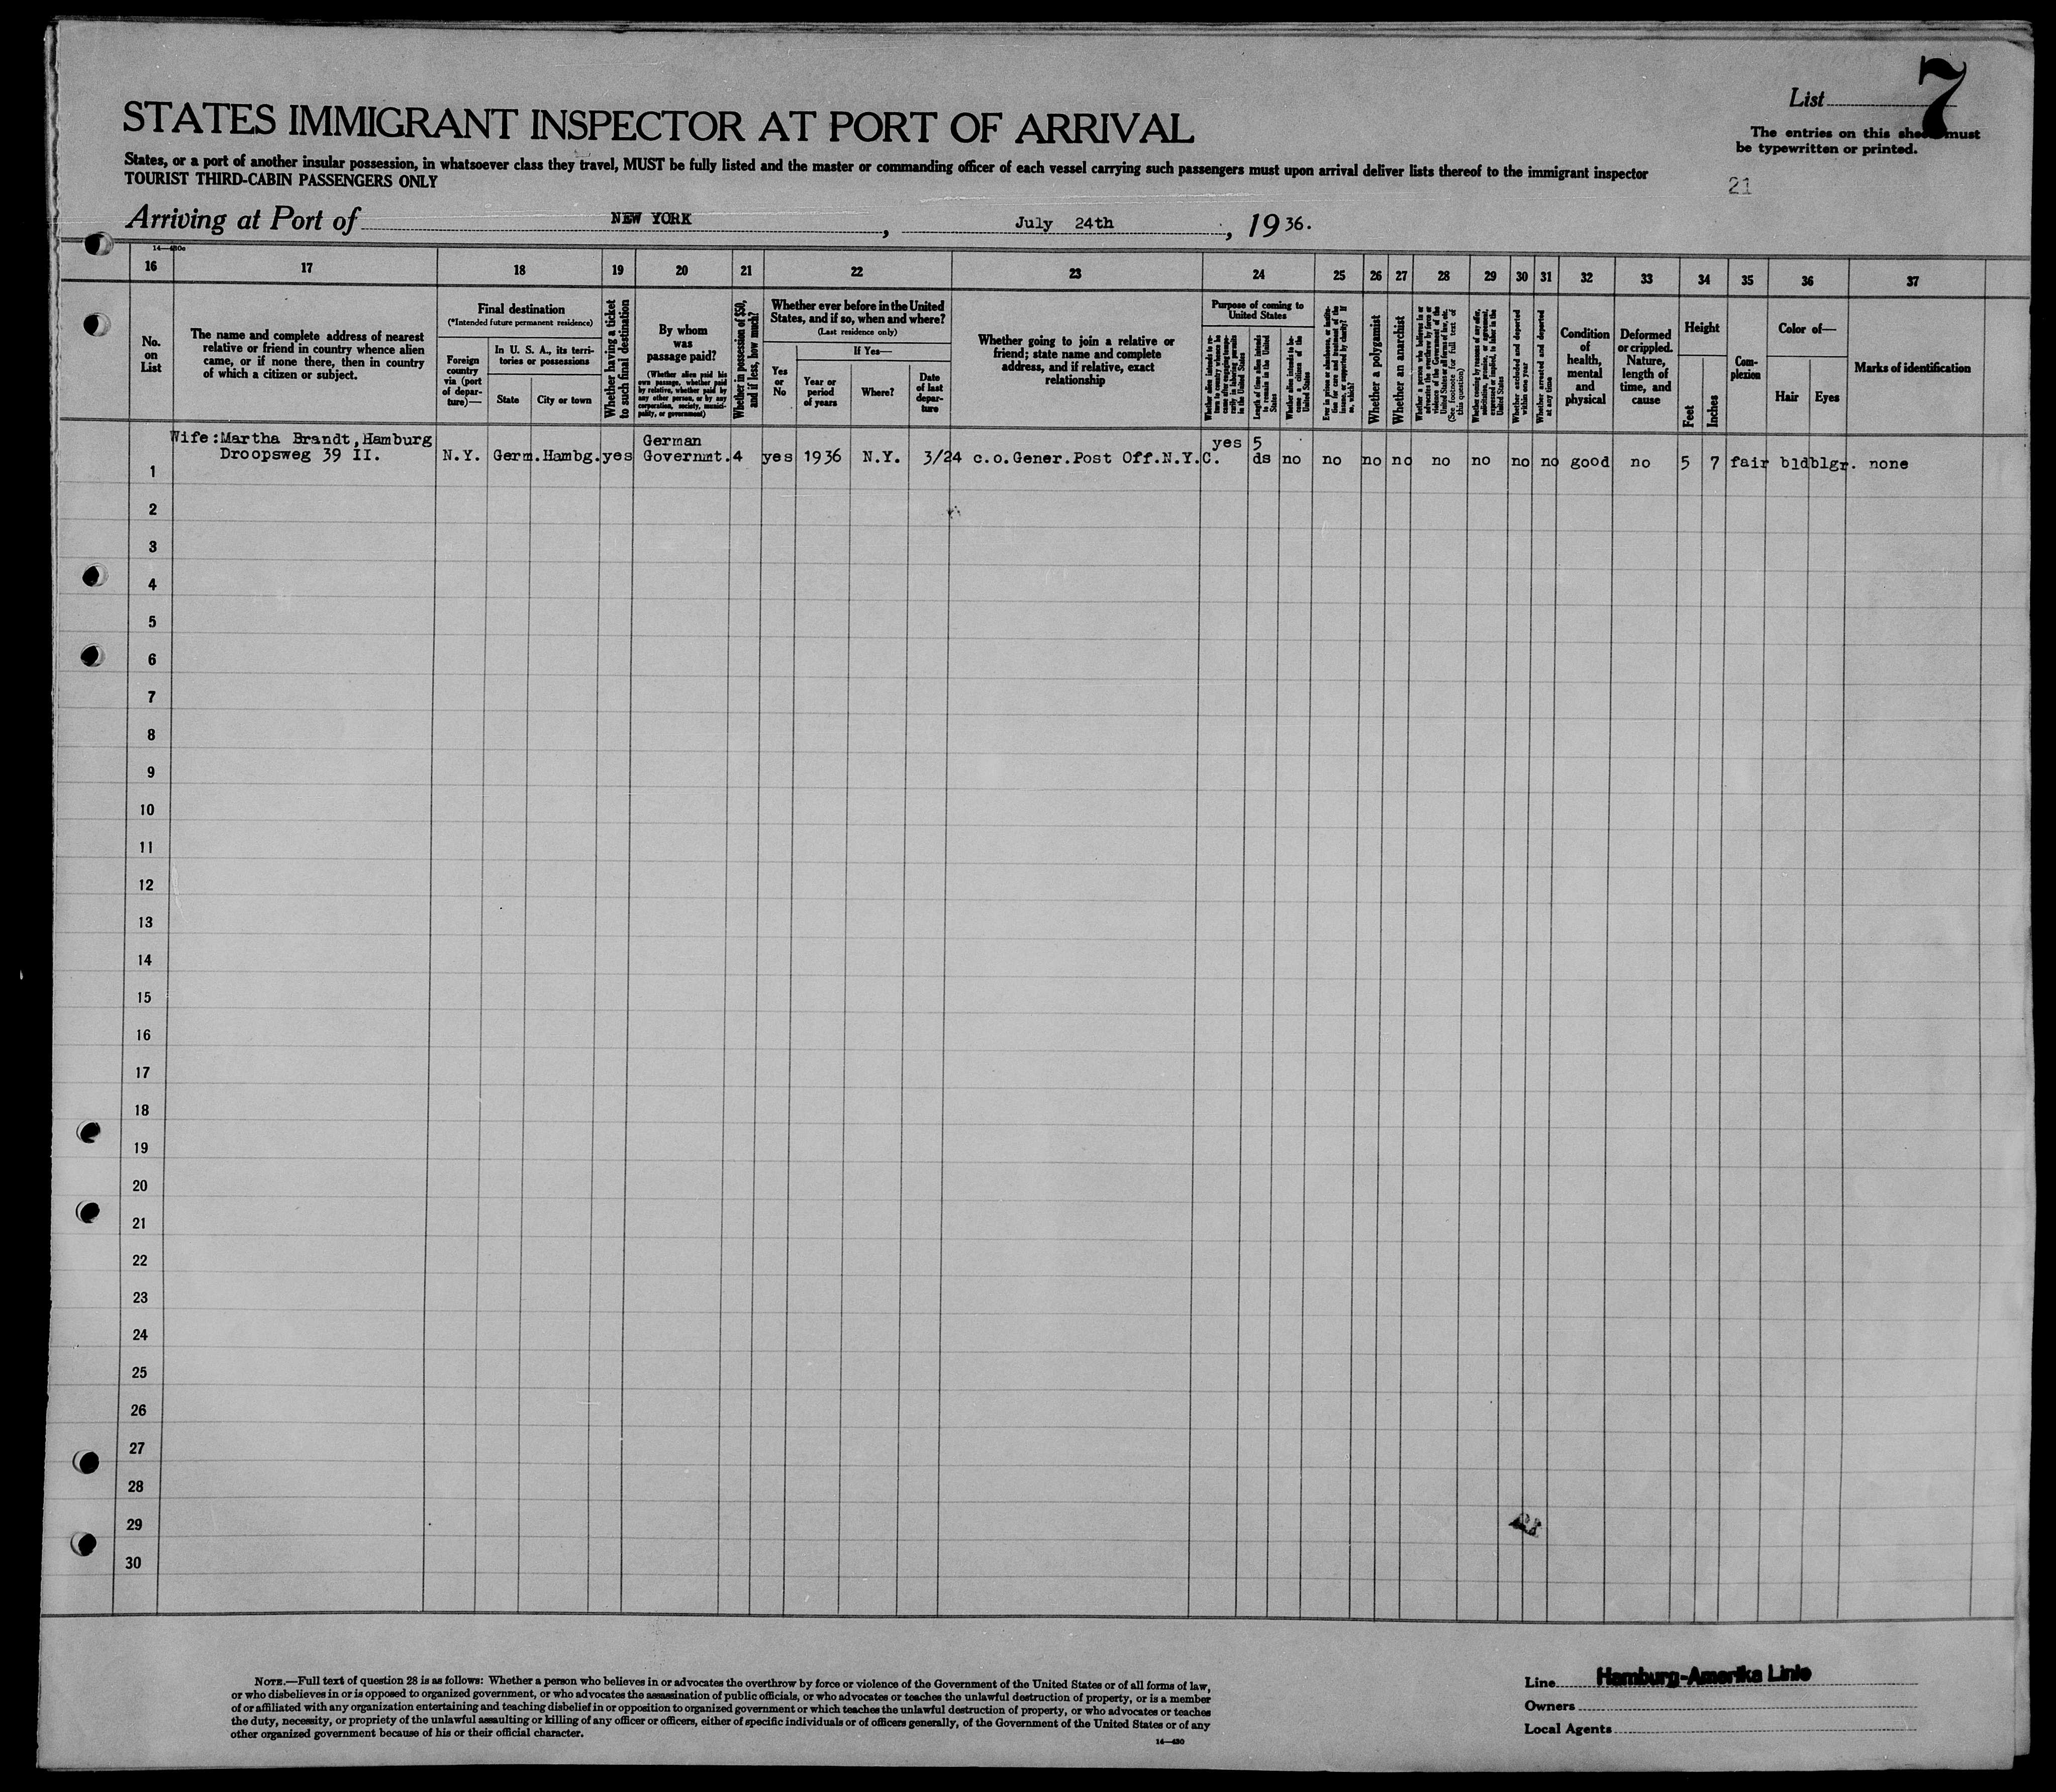 List 7
STATES IMMIGRANT INSPECTOR AT PORT OF ARRIVAL
The entries on this sheet must
be typewritten or printed.
States, or a port of another insular possession, in whatsoever class they travel, MUST be fully listed and the master or commanding officer of each vessel carrying such passengers must upon arrival deliver lists thereof to the immigrant inspector
TOURIST THIRD-CABIN PASSENGERS ONLY
21
Arriving at Port of NEW YORK, July 24th, 1936.
14—430a
16 17 18 19 20 21 22 23 24 25 26 27 28 29 30 31 32 33 34 35 36 37
No.
on
List
The name and complete address of nearest
relative or friend in country whence alien
came, or if none there, then in country
of which a citizen or subject.
Final destination
(*Intended future permanent residence)
Foreign
country
via (port
of depar-
ture)—
In U. S. A., its terri-
tories or possessions
State
City or town
Whether having a ticket
to such final destination
By whom
was
passage paid?
(Whether alien paid his
own passage, whether paid
by relative, whether paid by
any other person, or by any
corporation, society, munici-
pality, or government)
Whether in possession of $50,
and if less, how much?
Whether ever before in the United
States, and if so, when and where?
(Last residence only)
Yes
or
No
If Yes—
Year or
period
of years
Where?
Date
of last
depar-
ture
Whether going to join a relative or
friend; state name and complete
address, and if relative, exact
relationship
Purpose of coming to
United States
Length of time alien intends
to remain in the United
States
Whether alien intends to be-
come a citizen of the
United States
Whether a polygamist
Whether an anarchist
Whether excluded and deported
within one year
Whether arrested and deported
at any time
Condition
of
health,
mental
and
physical
Deformed
or crippled.
Nature,
length of
time, and
cause
Height
Feet
Inches
Com-
plexion
Color of—
Hair
Eyes
Marks of identification
Wife:Martha Brandt,Hamburg German yes 5
1 Droopsweg 39 II. N.Y. Germ.Hambg.yes Governmt.4 yes 1936 N.Y. 3/24 c.o.Gener.Post Off.N.Y.C. ds no no no no no no no no good no 5 7 fair bld blgr. none
2
3
4
5
6
7
8
9
10
11
12
13
14
15
16
17
18
19
20
21
22
23
24
25
26
27
28
29
30
NOTE.—Full text of question 28 is as follows: Whether a person who believes in or advocates the overthrow by force or violence of the Government of the United States or of all forms of law,
or who disbelieves in or is opposed to organized government, or who advocates the assassination of public officials, or who advocates or teaches the unlawful destruction of property, or is a member
of or affiliated with any organization entertaining and teaching disbelief in or opposition to organized government or which teaches the unlawful destruction of property, or who advocates or teaches
the duty, necessity, or propriety of the unlawful assaulting or killing of any officer or officers, either of specific individuals or of officers generally, of the Government of the United States or of any
other organized government because of his or their official character.
14—430
Line Hamburg-Amerika Linie
Owners
Local Agents